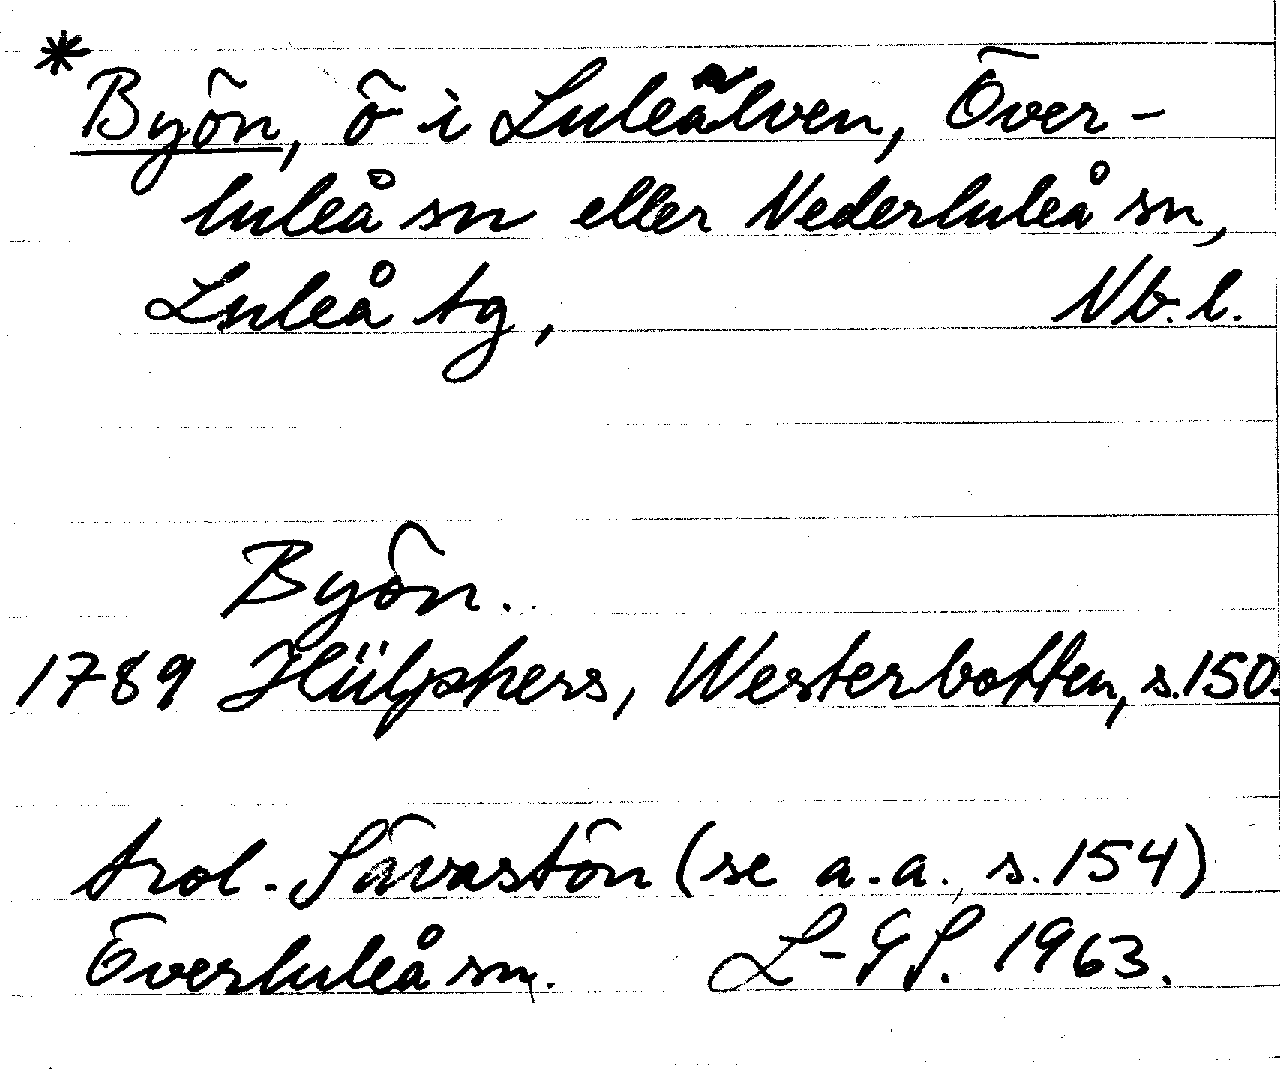 * Byön, ö i Luleälven, Över-
luleå sn eller Nederluleå sn,
Luleå tg, Nb. l.
Byön.
1789 Hülphers, Westerbotten, s. 150.
trol. Sävastön (se a.a. s. 154)
Överluleå sn. L-GS. 1963.